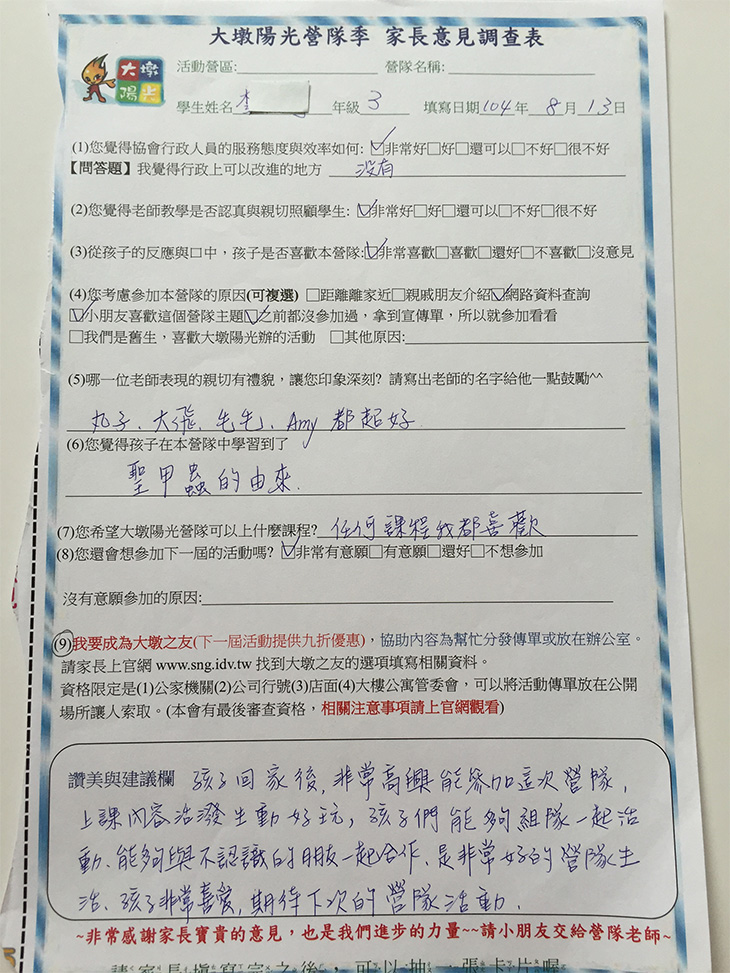 大墩陽光營隊季 家長意見調查表
大墩
陽光
活動營區: 營隊名稱:
學生姓名 李 年級 3 填寫日期 104 年 8 月 13 日
(1)您覺得協會行政人員的服務態度與效率如何: ☑非常好□好□還可以□不好□很不好
【問答題】我覺得行政上可以改進的地方 沒有
(2)您覺得老師教學是否認真與親切照顧學生: ☑非常好□好□還可以□不好□很不好
(3)從孩子的反應與口中，孩子是否喜歡本營隊:☑非常喜歡□喜歡□還好□不喜歡□沒意見
(4)您考慮參加本營隊的原因(可複選) □距離離家近□親戚朋友介紹☑網路資料查詢
☑小朋友喜歡這個營隊主題☑之前都沒參加過，拿到宣傳單，所以就參加看看
□我們是舊生，喜歡大墩陽光辦的活動 □其他原因:
(5)哪一位老師表現的親切有禮貌，讓您印象深刻? 請寫出老師的名字給他一點鼓勵^^
丸子、大飛、毛毛、Amy 都超好
(6)您覺得孩子在本營隊中學習到了
聖甲蟲的由來.
(7)您希望大墩陽光營隊可以上什麼課程? 任何課程我都喜歡
(8)您還會想參加下一屆的活動嗎? ☑非常有意願□有意願□還好□不想參加
沒有意願參加的原因:
(9)我要成為大墩之友(下一屆活動提供九折優惠)，協助內容為幫忙分發傳單或放在辦公室。
請家長上官網 www.sng.idv.tw 找到大墩之友的選項填寫相關資料。
資格限定是(1)公家機關(2)公司行號(3)店面(4)大樓公寓管委會，可以將活動傳單放在公開
場所讓人索取。(本會有最後審查資格，相關注意事項請上官網觀看)
讚美與建議欄 孩子回家後,非常高興能參加這次營隊,
上課內容活潑生動好玩,孩子們能夠組隊一起活
動、能夠與不認識的朋友一起合作、是非常好的營隊生
活、孩子非常喜愛,期待下次的營隊活動.
~非常感謝家長寶貴的意見，也是我們進步的力量~~請小朋友交給營隊老師~
請家長填寫完之後，可以抽一張卡片喔